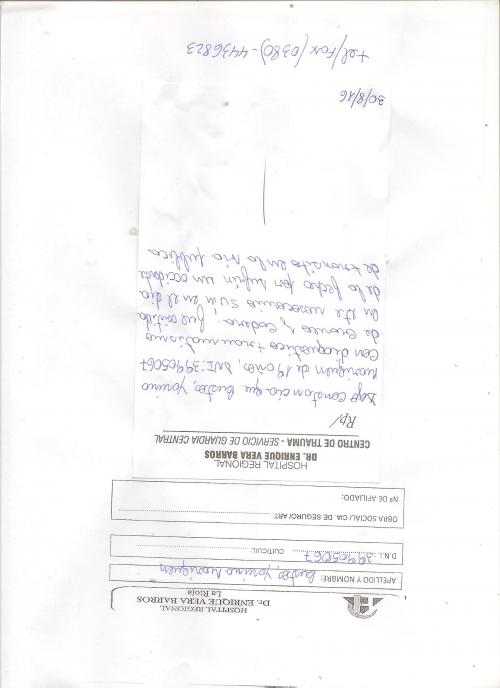 HOSPITAL REGIONAL
Dr. ENRIQUE VERA BARROS
La Rioja
APELLIDO Y NOMBRE: Bustos, Yanina Mariquen
D.N.I. 39905067 CUIT/CUIL:
OBRA SOCIAL/ CIA. DE SEGURO/ART.
Nº DE AFILIADO:
HOSPITAL REGIONAL
DR. ENRIQUE VERA BARROS
CENTRO DE TRAUMA - SERVICIO DE GUARDIA CENTRAL
Rp/
Dejo constancia que Bustos, Yanina
Mariquen de 19 años, DNI: 39905067
con diagnostico traumatismo
de craneo y cadera; fue
en este nosocomio en el dia
de la fecha por sufrir un accidente
de transito en la via publica.
30/8/16
tel/Fax (0380)-4436823